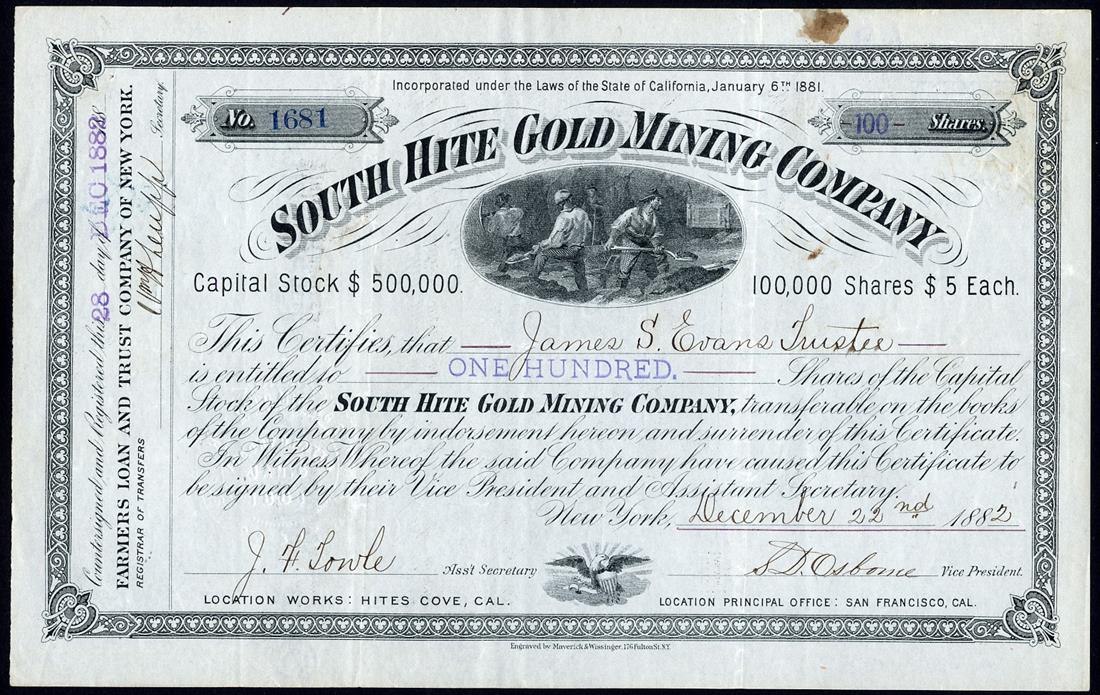 Incorporated under the Laws of the State of California, January 6TH 1881.
No. 1681
-100- Shares.
SOUTH HITE GOLD MINING COMPANY
Capital Stock $ 500,000.
100,000 Shares $ 5 Each.
This Certifies, that James S. Evans Trustee
is entitled to ONE HUNDRED. Shares of the Capital
Stock of the SOUTH HITE GOLD MINING COMPANY, transferable on the books
of the Company by indorsement hereon and surrender of this Certificate.
In Witness Whereof the said Company have caused this Certificate to
be signed by their Vice President and Assistant Secretary.
New York, December 22nd 1882
J. H. Towle Ass't Secretary
S. D. Osborne Vice President.
LOCATION WORKS: HITES COVE, CAL.
LOCATION PRINCIPAL OFFICE: SAN FRANCISCO, CAL.
Engraved by Maverick & Wissinger, 176 Fulton St. N.Y.
Countersigned and registered this 28 day of DEC 1882
FARMERS LOAN AND TRUST COMPANY OF NEW YORK.
REGISTRAR OF TRANSFERS
Secretary